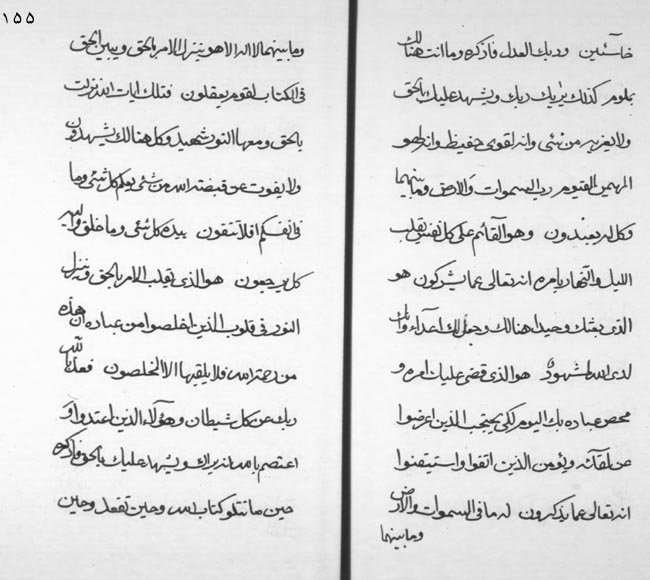 ١٥٥
خاسئين وربك العدل فاذكره وما انت هنالك
بملوم كذلك يريك ربك ويشهد عليك بالحق
ولا يعزب من شئ وانه لقوى حفيظ وانه لهو
المهمين القيوم رب السموات والارض وما بينهما
وكل له يعبدون وهو القائم على كل نفس يقلب
الليل والنهار بامره انه تعالى عما يشركون هو
الذى بعثك وحيدا هنالك وجعل لك اعداء وانك
لدى الله لمشهود هو الذى قضى عليك امره و
محص عباده بك اليوم لكى يحتجب الذين اعرضوا
عن لقائه ويؤمن الذين اتقوا واستيقنوا
انه تعالى عما يذكرون له ما فى السموات والارض
وما بينهما
وما بينهما لا اله الا هو ينزل الامر بالحق ويبين الحق
فى الكتاب لقوم يعقلون فتلك ايات الله نزلت
بالحق ومعها النور شهيد وكل هنالك يشهدون
ولا يفوت عن قبضته الله من شئ يعلم كل شئ وما
فى انفسكم افلا تتقون بيده كل شئ وما خلق واليه
كل يرجعون هو الذى يقلب الامر بالحق وينزل
النور فى قلوب الذين اخلصوا من عباده ان هذه
من رحمة الله فلا يلقيها الا المخلصون
ربك عن كل شيطان وهؤلاء الذين اعتدوا و
اعتصم بالله انه يراك ويشهد عليك بالحق واذكره
حين ما تتلو كتاب الله وحين تقعد وحين